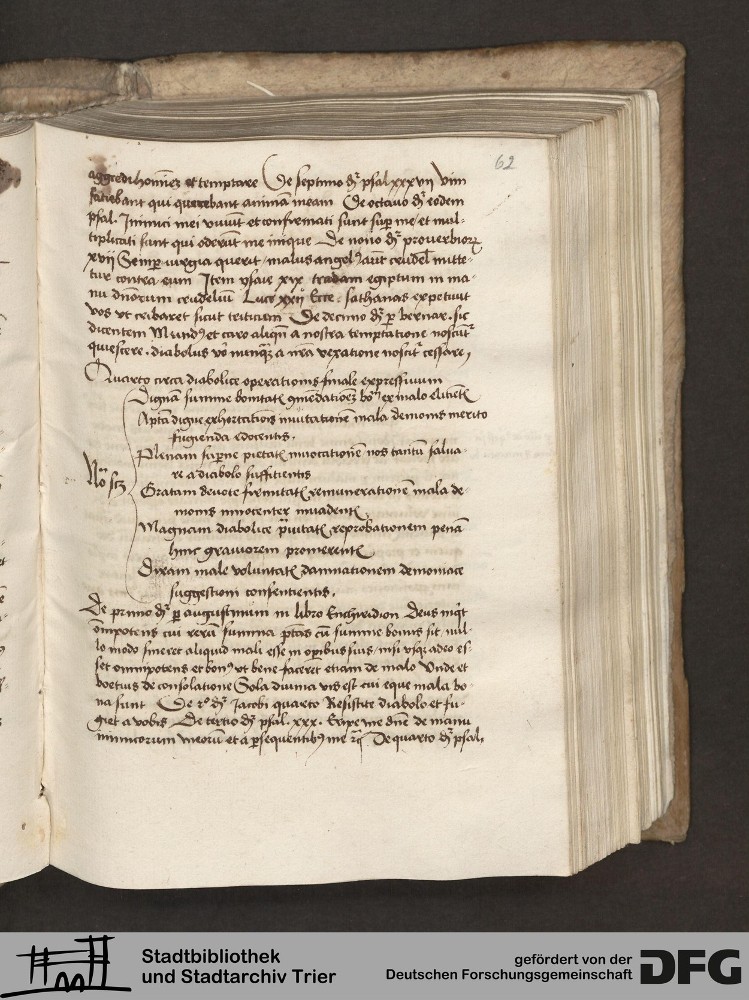 62
aggredi hoines et temptare De septimo dr psal xxxvii Vim
faciebant qui querebant animam meam De octavo dr eodem
psal. Inimici mei vivunt et confirmati sunt sup me et mul-
tiplicati sunt qui oderunt me inique De nono dr proverbiorz
xvii Semp iurgia querit malus angel9 aut crudel mitte-
tur contra eum Item ysaie xix tradam egiptum in ma-
nu dnorum crudeliu Luce xxii Ecce sathanas expetivit
vos vt cribaret sicut triticum De decimo dr p bernar. sic
dicentem Mund9 et caro aliqn a nostra temptatione noscut
quiescere. diabolus vo nunqz a nra vexatione noscit cessare
Quarto circa diabolice operationis finale expressivum
Dignam summe bonitatis bo ex malo elicientis
Apta digne exhortationis invitatione mala demonis merito
fugienda edocentis.
Plenam supne pietatis invocatione nos tantu salva-
re a diabolo sufficientis
No scz
Gratam devote firmitatis remuneratione mala de-
monis innocenter
Magnam diabolice pravitatis reprobationem pena
hinc graviorem promerentis
Diram male voluntatis damnationem demoniace
suggestioni consentientis.
De primo dr p augustinum in libro Encheridion Deus inqt
omipotens cui reru summa ptas cu summe bonus sit nul-
lo modo sineret aliquid mali esse in opibus suis nisi usq adeo es-
set omnipotens et bon9 vt bene faceret etiam de malo Unde et
boetius de consolatione Sola divina vis est cui eque mala bo-
na sunt De 2o dr Jacobi quarto Resistite diabolo et fu-
giet a vobis De tertio dr psal. xxx. Eripe me dne de manu
inimicorum meoru et a psequentib9 me rc De quarto dr psal.
Stadtbibliothek
und Stadtarchiv Trier
gefördert von der
Deutschen Forschungsgemeinschaft
DFG